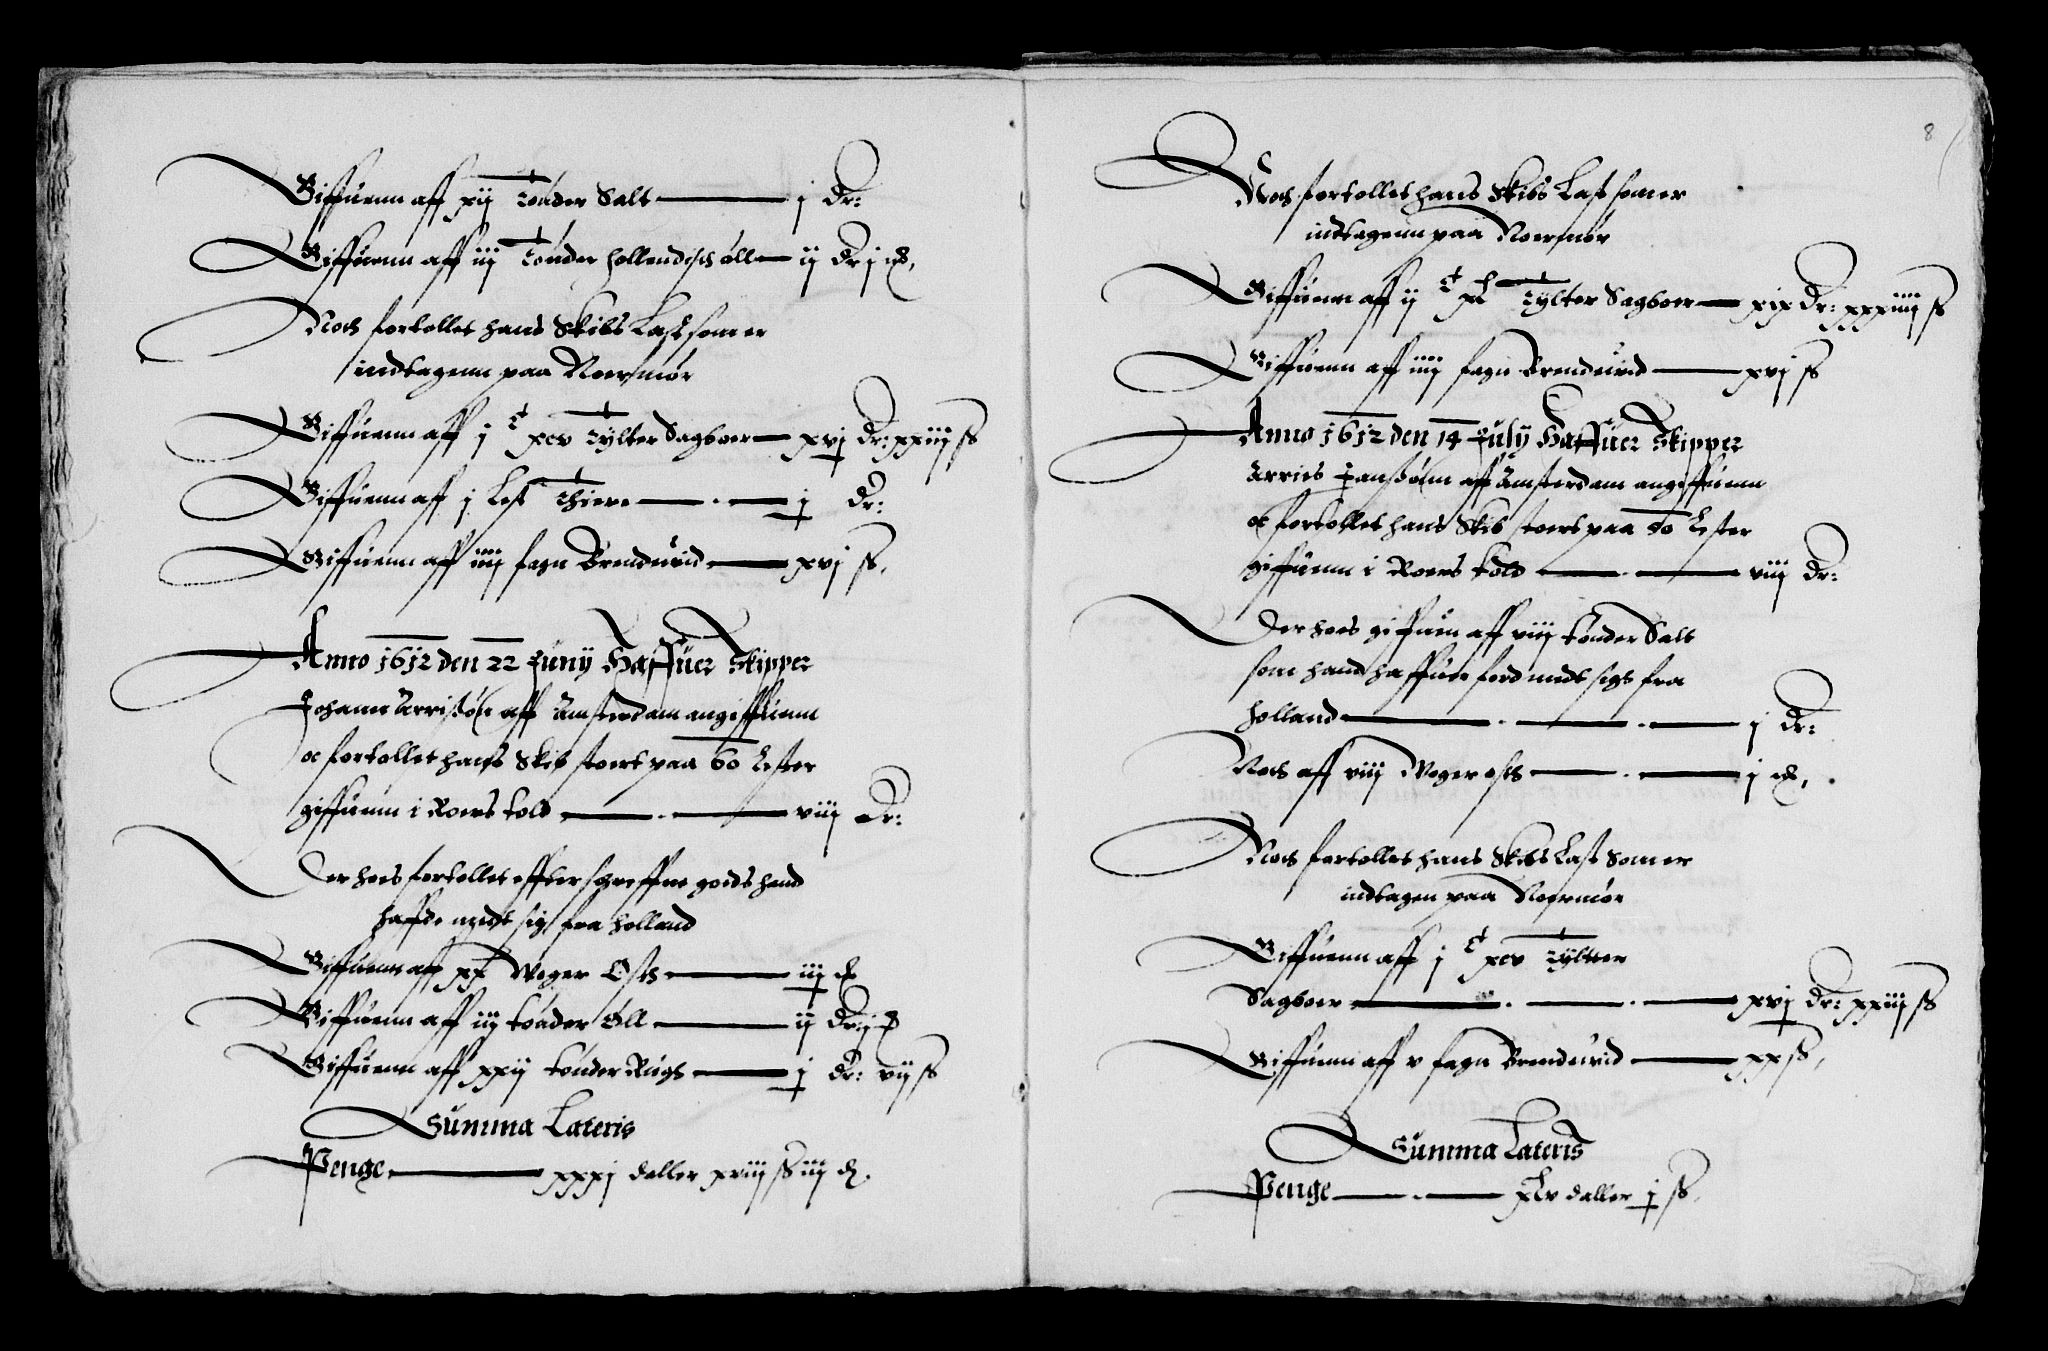 Giffuenn aff xij tønder Salt j dr:
Giffuenn aff iiij tønder hollendisch øll ij dr j ort,
Noch fortollet hans Skibs Last som er
indtagenn paa Noermør
Giffuenn aff j c xcv tylter Sagboer xvj dr: xxiiij ß
Giffuenn aff j Lest thiere j dr:
Giffuenn aff iiij fagn Brendeuid xvj ß,
Anno 1612 den 22 Juny Haffuer Skipper
Johann Arrisøn aff Amsterdam angiffuenn
oc fortollet hans Skib stoert paa 60 Lester
giffuenn i Roers told viij dr:
Der hoes fortollet effterschreffne goeds hand
haffde medt sig fra Holland
Giffuenn aff xx Woger Osts iij ort
Giffuenn aff iiij tønder Øll ij dr: j ort
Giffuenn aff xxij tønder Rugs j dr: vij ß
Summa Lateris
Penge xxxj daller xviij ß iiij d.
8
Noch fortollet hans Skibs Last som er
indtagenn paa Noermør
Giffuenn aff ij c xl tylter Sagboer xix dr: xxxiiij ß
Giffuenn aff iiij fagn Brendeuid xvj ß
Anno 1612 den 14 July Haffuer Skipper
Arries Jansøn aff Amsterdam angiffuenn
oc fortollet hans Skib stoert paa 50 Lester
giffuenn i Roers told viij dr:
Der hoes giffuen aff viij tønder Salt
som hand haffuer ford medt sigh fra
Holland j dr:
Noch aff viij Woger osts j ort,
Noch fortollet hans Skibs Last Som er
indtagen paa Noermør
Giffuenn aff j c xcv tylter
Sagboer xvj dr: xxiiij ß
Giffuenn aff v fagn Brendeuid xx ß,
Summa Lateris
Penge xlv daller j ß,